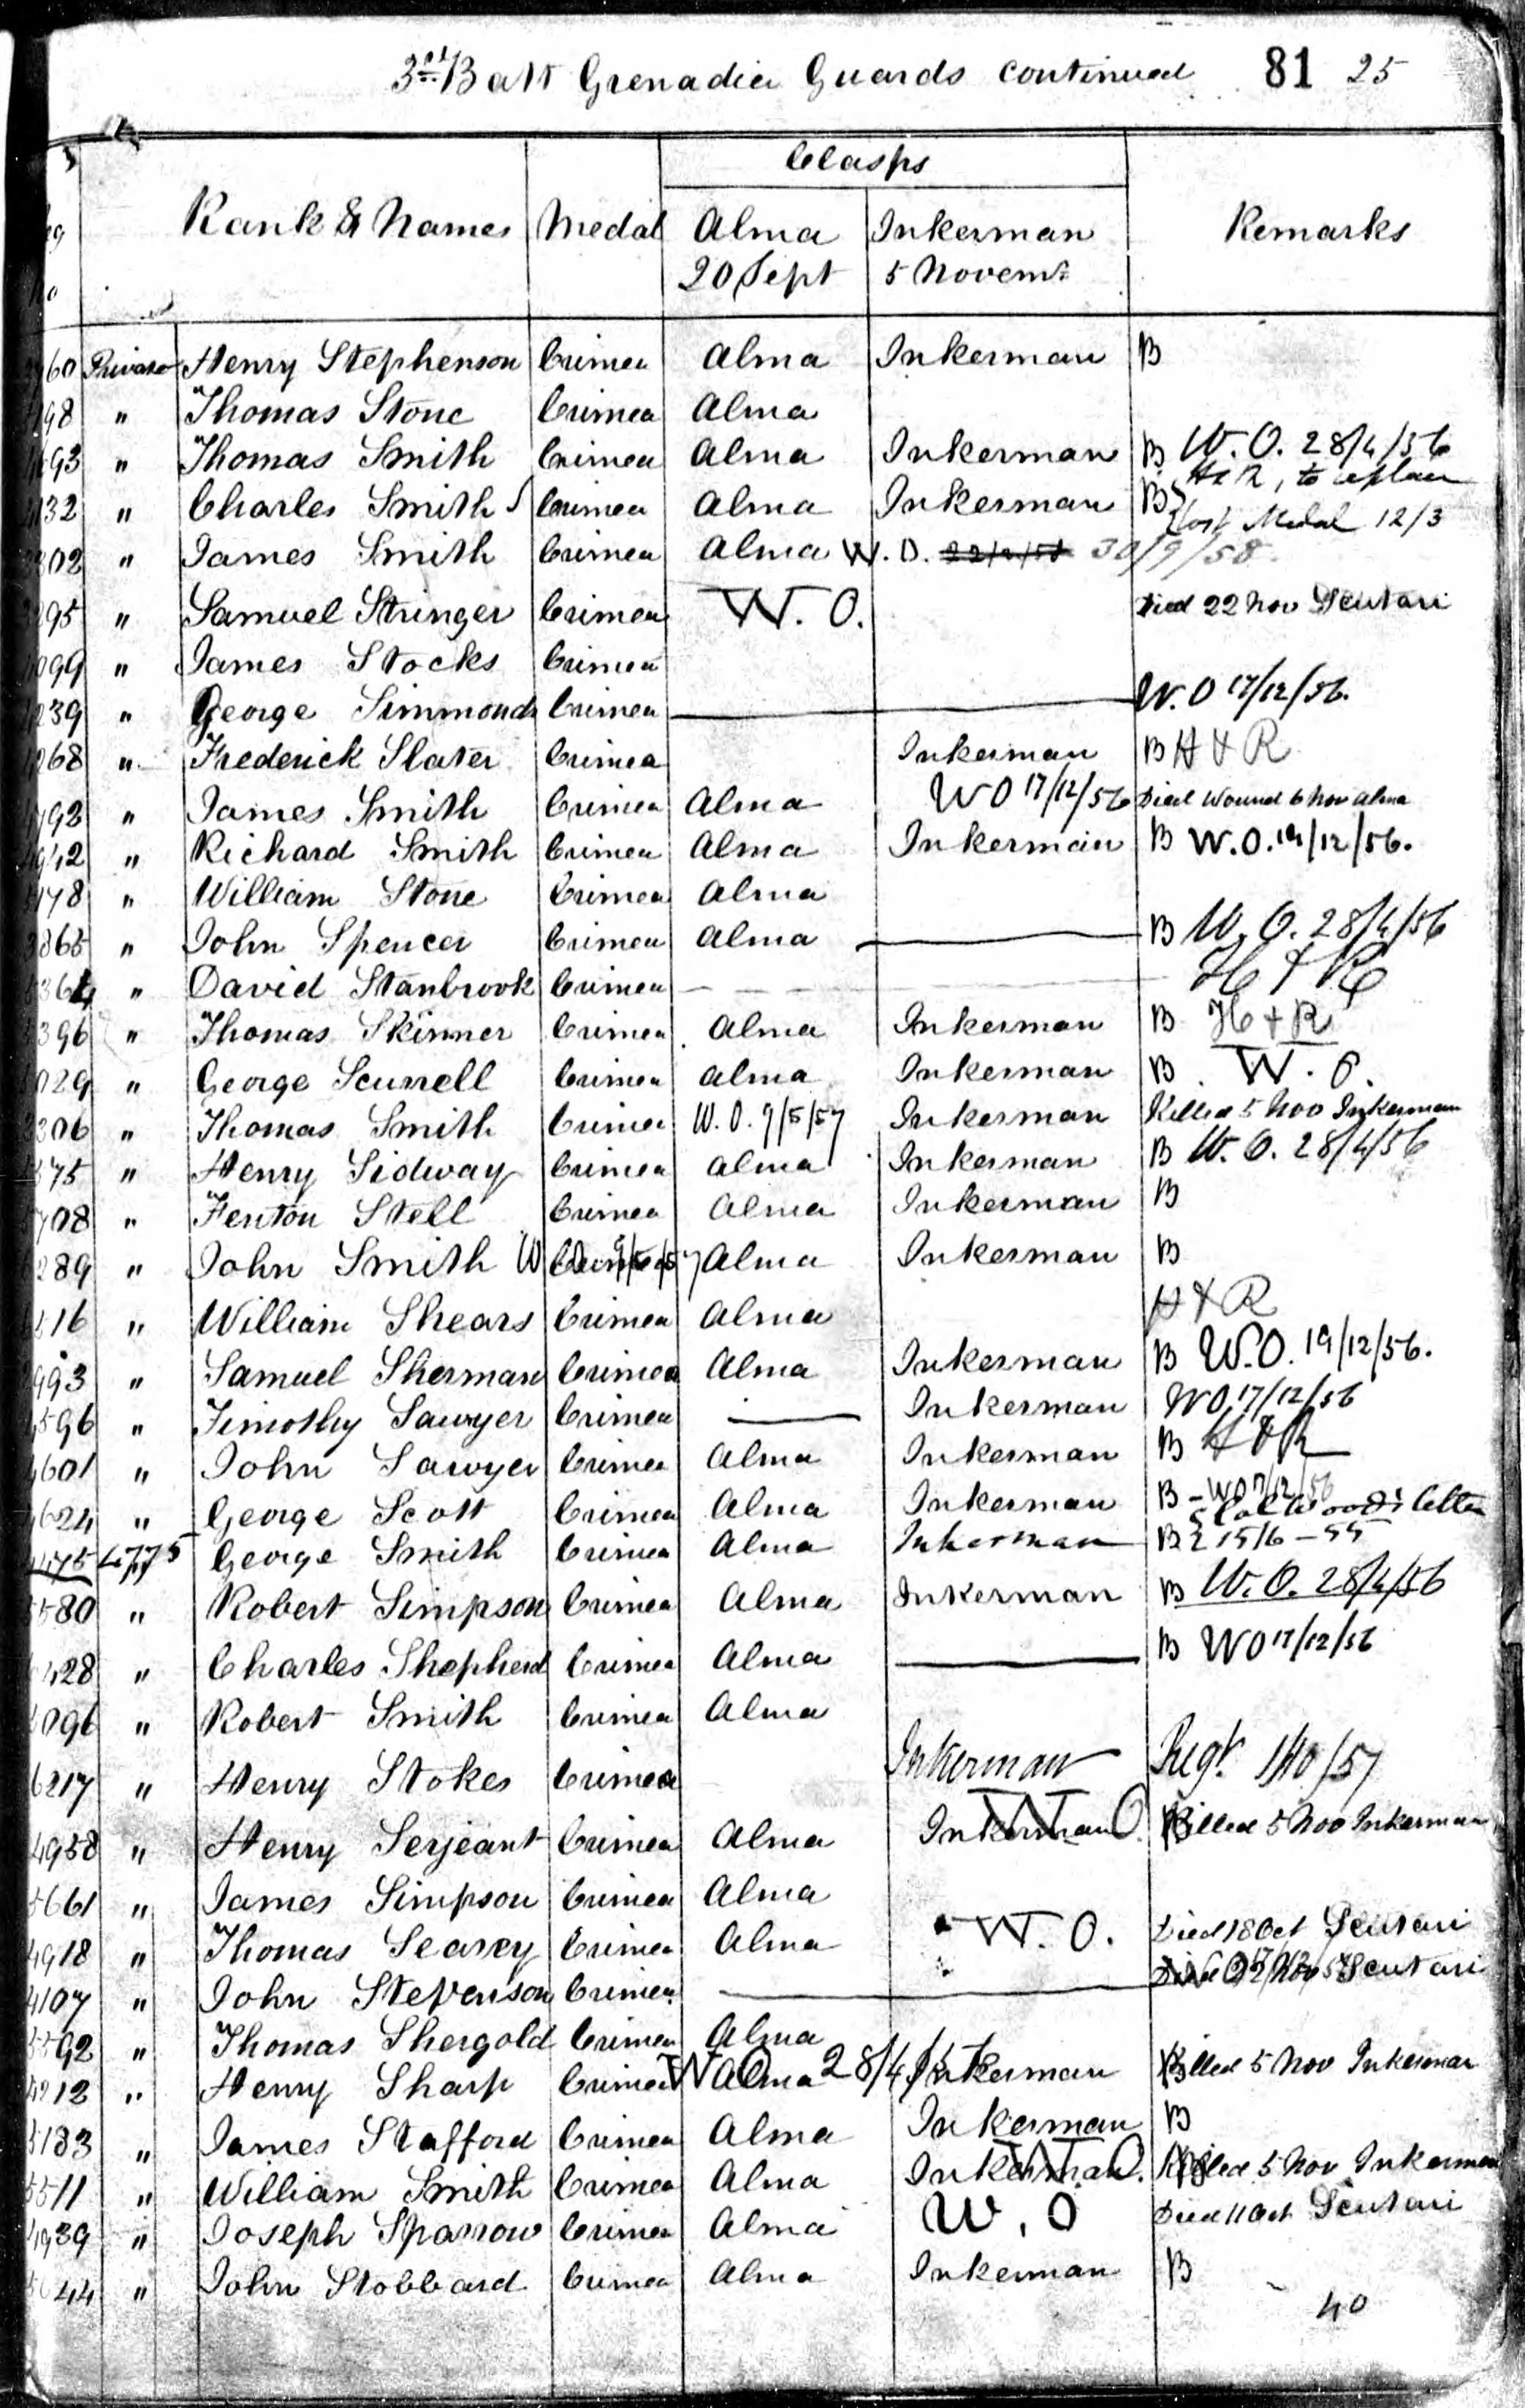 3rd Batt Grenadier Guards continued 81 25
Clasps
Rank & Names Medal Alma Inkerman Remarks
20 Sept 5 Novemr
60 Private Henry Stephenson Crimea Alma Inkerman B
98 " Thomas Stone Crimea Alma
93 " Thomas Smith Crimea Alma Inkerman B W.O. 28/4/56
H & R, to replace
32 " Charles Smith Crimea Alma Inkerman B
Lost Medal 12/3
02 " James Smith Crimea Alma W.O. 30/9/58
95 " Samuel Stringer Crimea W.O. Died 22 Nov Scutari
99 " James Stocks Crimea
239 " George Simmonds Crimea W.O 17/12/56.
268 " Frederick Slater Crimea Inkerman B H & R
92 " James Smith Crimea Alma WO 17/12/56 Died Wound 6 Nov Alma
942 " Richard Smith Crimea Alma Inkerman B W.O. 19/12/56.
178 " William Stone Crimea Alma
865 " John Spencer Crimea Alma B W.O. 28/4/56
364 " David Stanbrook Crimea H & R
396 " Thomas Skinner Crimea Alma Inkerman B H & R
029 " George Scurrell Crimea Alma Inkerman B W.O.
306 " Thomas Smith Crimea W.O. 9/5/57 Inkerman Killed 5 Nov Inkerman
75 " Henry Sidway Crimea Alma Inkerman B W.O. 28/4/56
708 " Fenton Stell Crimea Alma Inkerman B
289 " John Smith W.O. 9/5/57 Crimea Alma Inkerman B
516 " William Shears Crimea Alma H & R
993 " Samuel Sherman Crimea Alma Inkerman B W.O. 19/12/56.
596 " Timothy Sawyer Crimea Inkerman WO 17/12/56
601 " John Sawyer Crimea Alma Inkerman B H & R
624 " George Scott Crimea Alma Inkerman B - WO 17/12/56
Col Wood's letter
475 4775 George Smith Crimea Alma Inkerman B 15/6-55
580 " Robert Simpson Crimea Alma Inkerman B W.O. 28/4/56
428 " Charles Shepherd Crimea Alma B WO 17/12/56
096 " Robert Smith Crimea Alma
6217 " Henry Stokes Crimea Inkerman Regt 1/10/57
4958 " Henry Serjeant Crimea Alma Inkerman W.O. Killed 5 Nov Inkerman
5661 " James Simpson Crimea Alma
4918 " Thomas Searey Crimea Alma W.O. Died 18 Oct Scutari
4107 " John Stevenson Crimea Died 22 Nov Scutari
92 " Thomas Shergold Crimea Alma
4212 " Henry Sharp Crimea W.O. Alma 28/4/57 Inkerman Killed 5 Nov Inkerman
5183 " James Stafford Crimea Alma Inkerman B
5511 " William Smith Crimea Alma Inkerman W.O. Killed 5 Nov Inkerman
4939 " Joseph Sparrow Crimea Alma W.O Died 11 Oct Scutari
44 " John Stobbard Crimea Alma Inkerman B
40